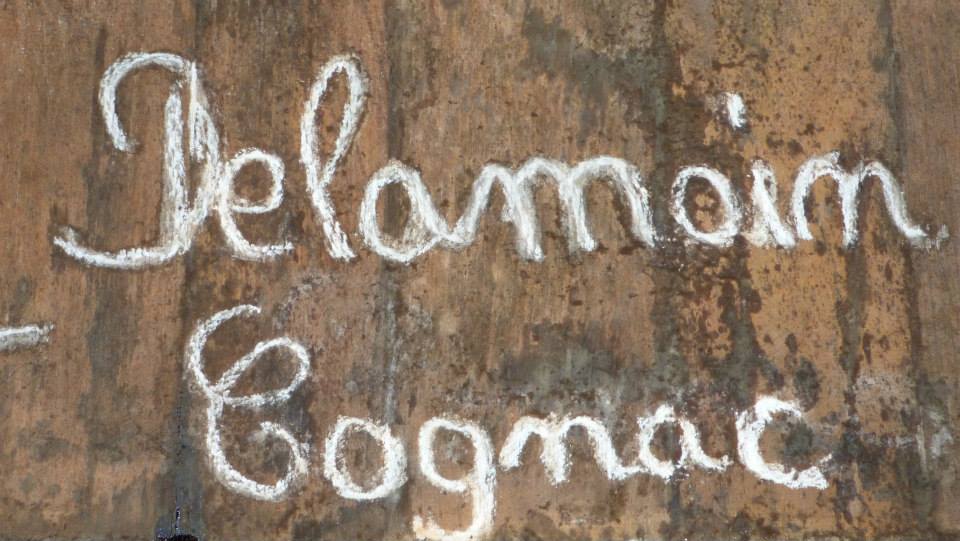 Delamain
Cognac